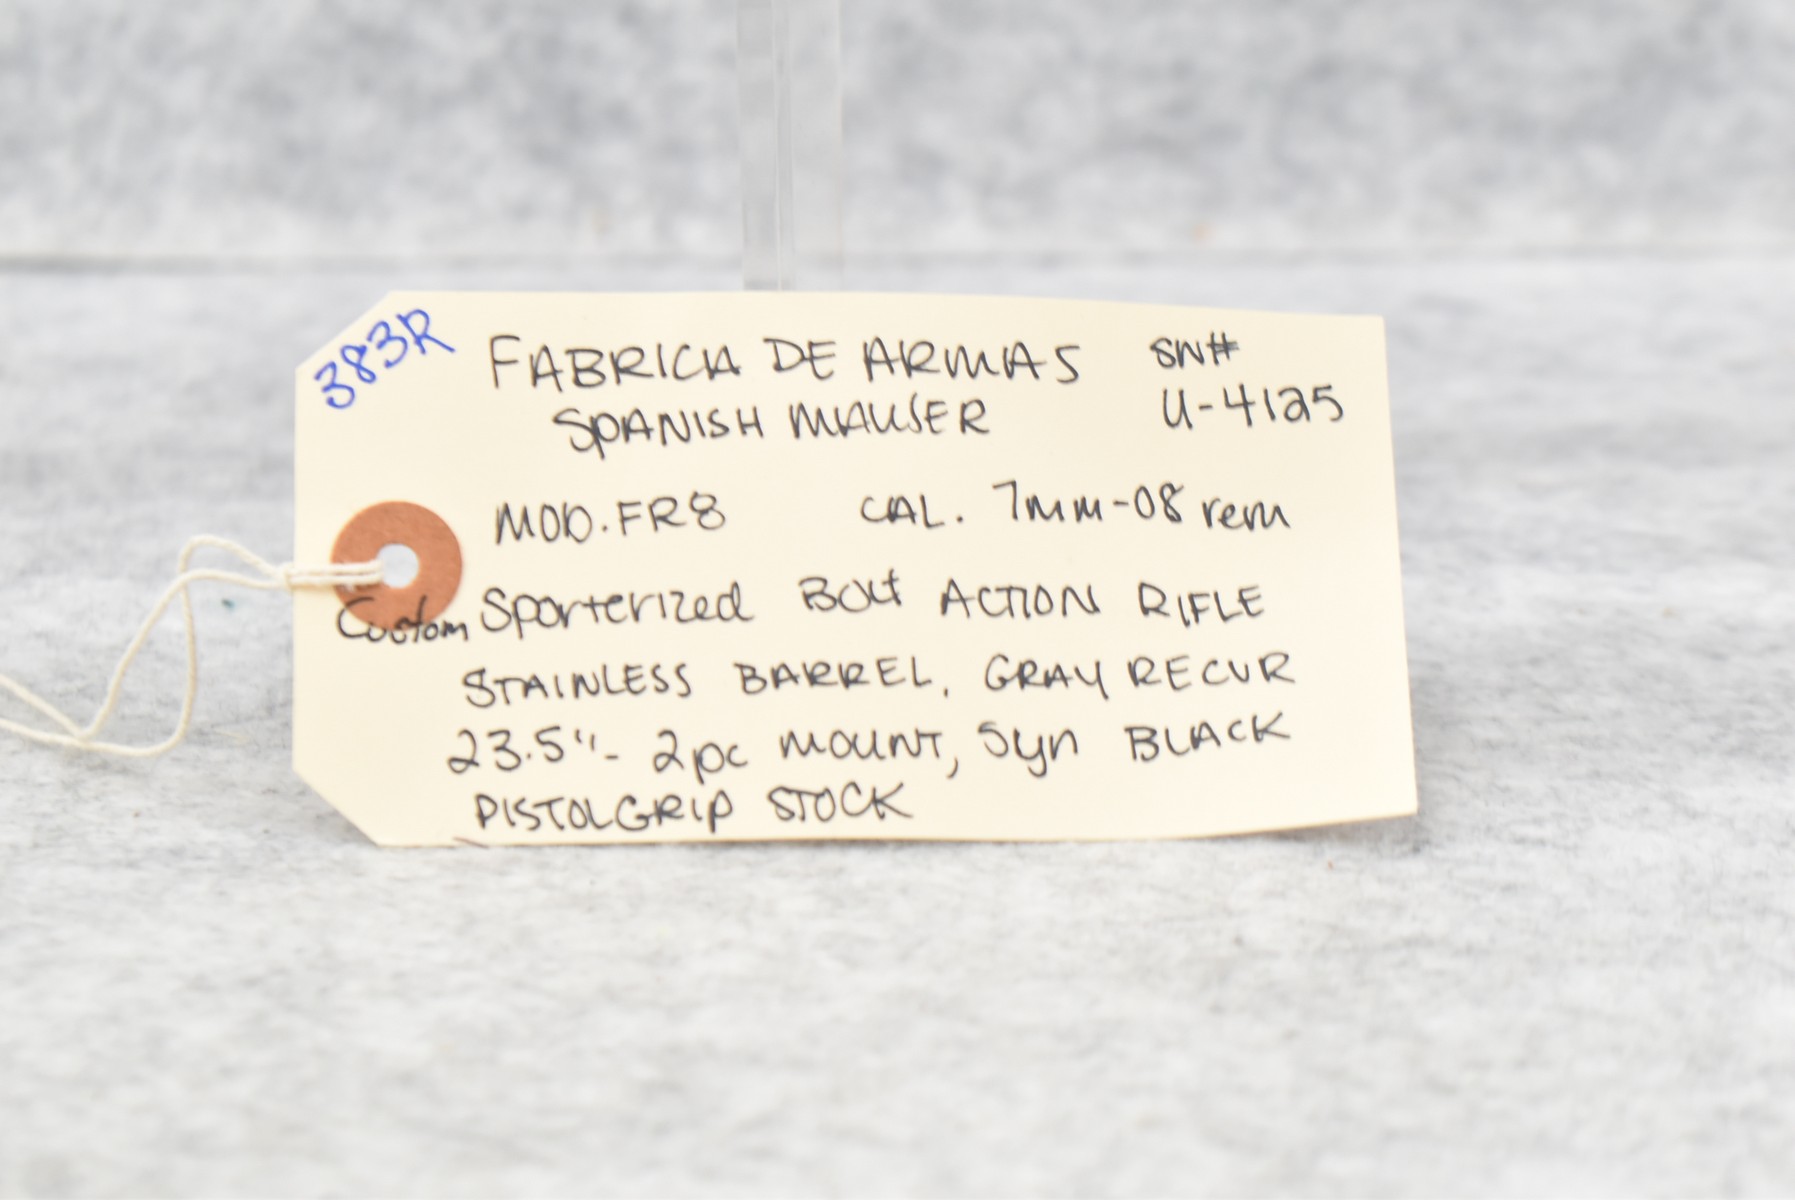 383R
FABRICA DE ARMAS SN#
SPANISH MAUSER U-4125
MOD. FR8 CAL. 7mm-08 rem
Custom Sporterized Bolt ACTION RIFLE
STAINLESS BARREL, GRAY RECVR
23.5"- 2pc MOUNT, Syn BLACK
PISTOLGRIP STOCK